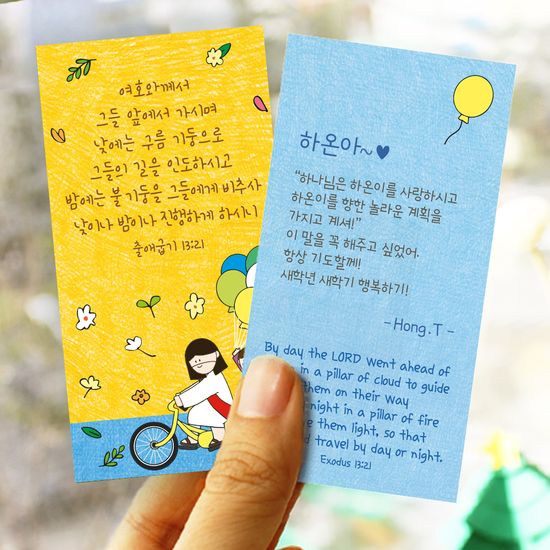 여호와께서
그들 앞에서 가시며
낮에는 구름 기둥으로
그들의 길을 인도하시고
밤에는 불 기둥을 그들에게 비추사
낮이나 밤이나 진행하게 하시니
출애굽기 13:21
하온아~♥
"하나님은 하온이를 사랑하시고
하온이를 향한 놀라운 계획을
가지고 계셔!"
이 말을 꼭 해주고 싶었어.
항상 기도할께!!
새학년 새학기 행복하기!
-Hong.T-
By day the LORD went ahead of
in a pillar of cloud to guide
them on their way
night in a pillar of fire
them light, so that
travel by day or night.
Exodus 13:21